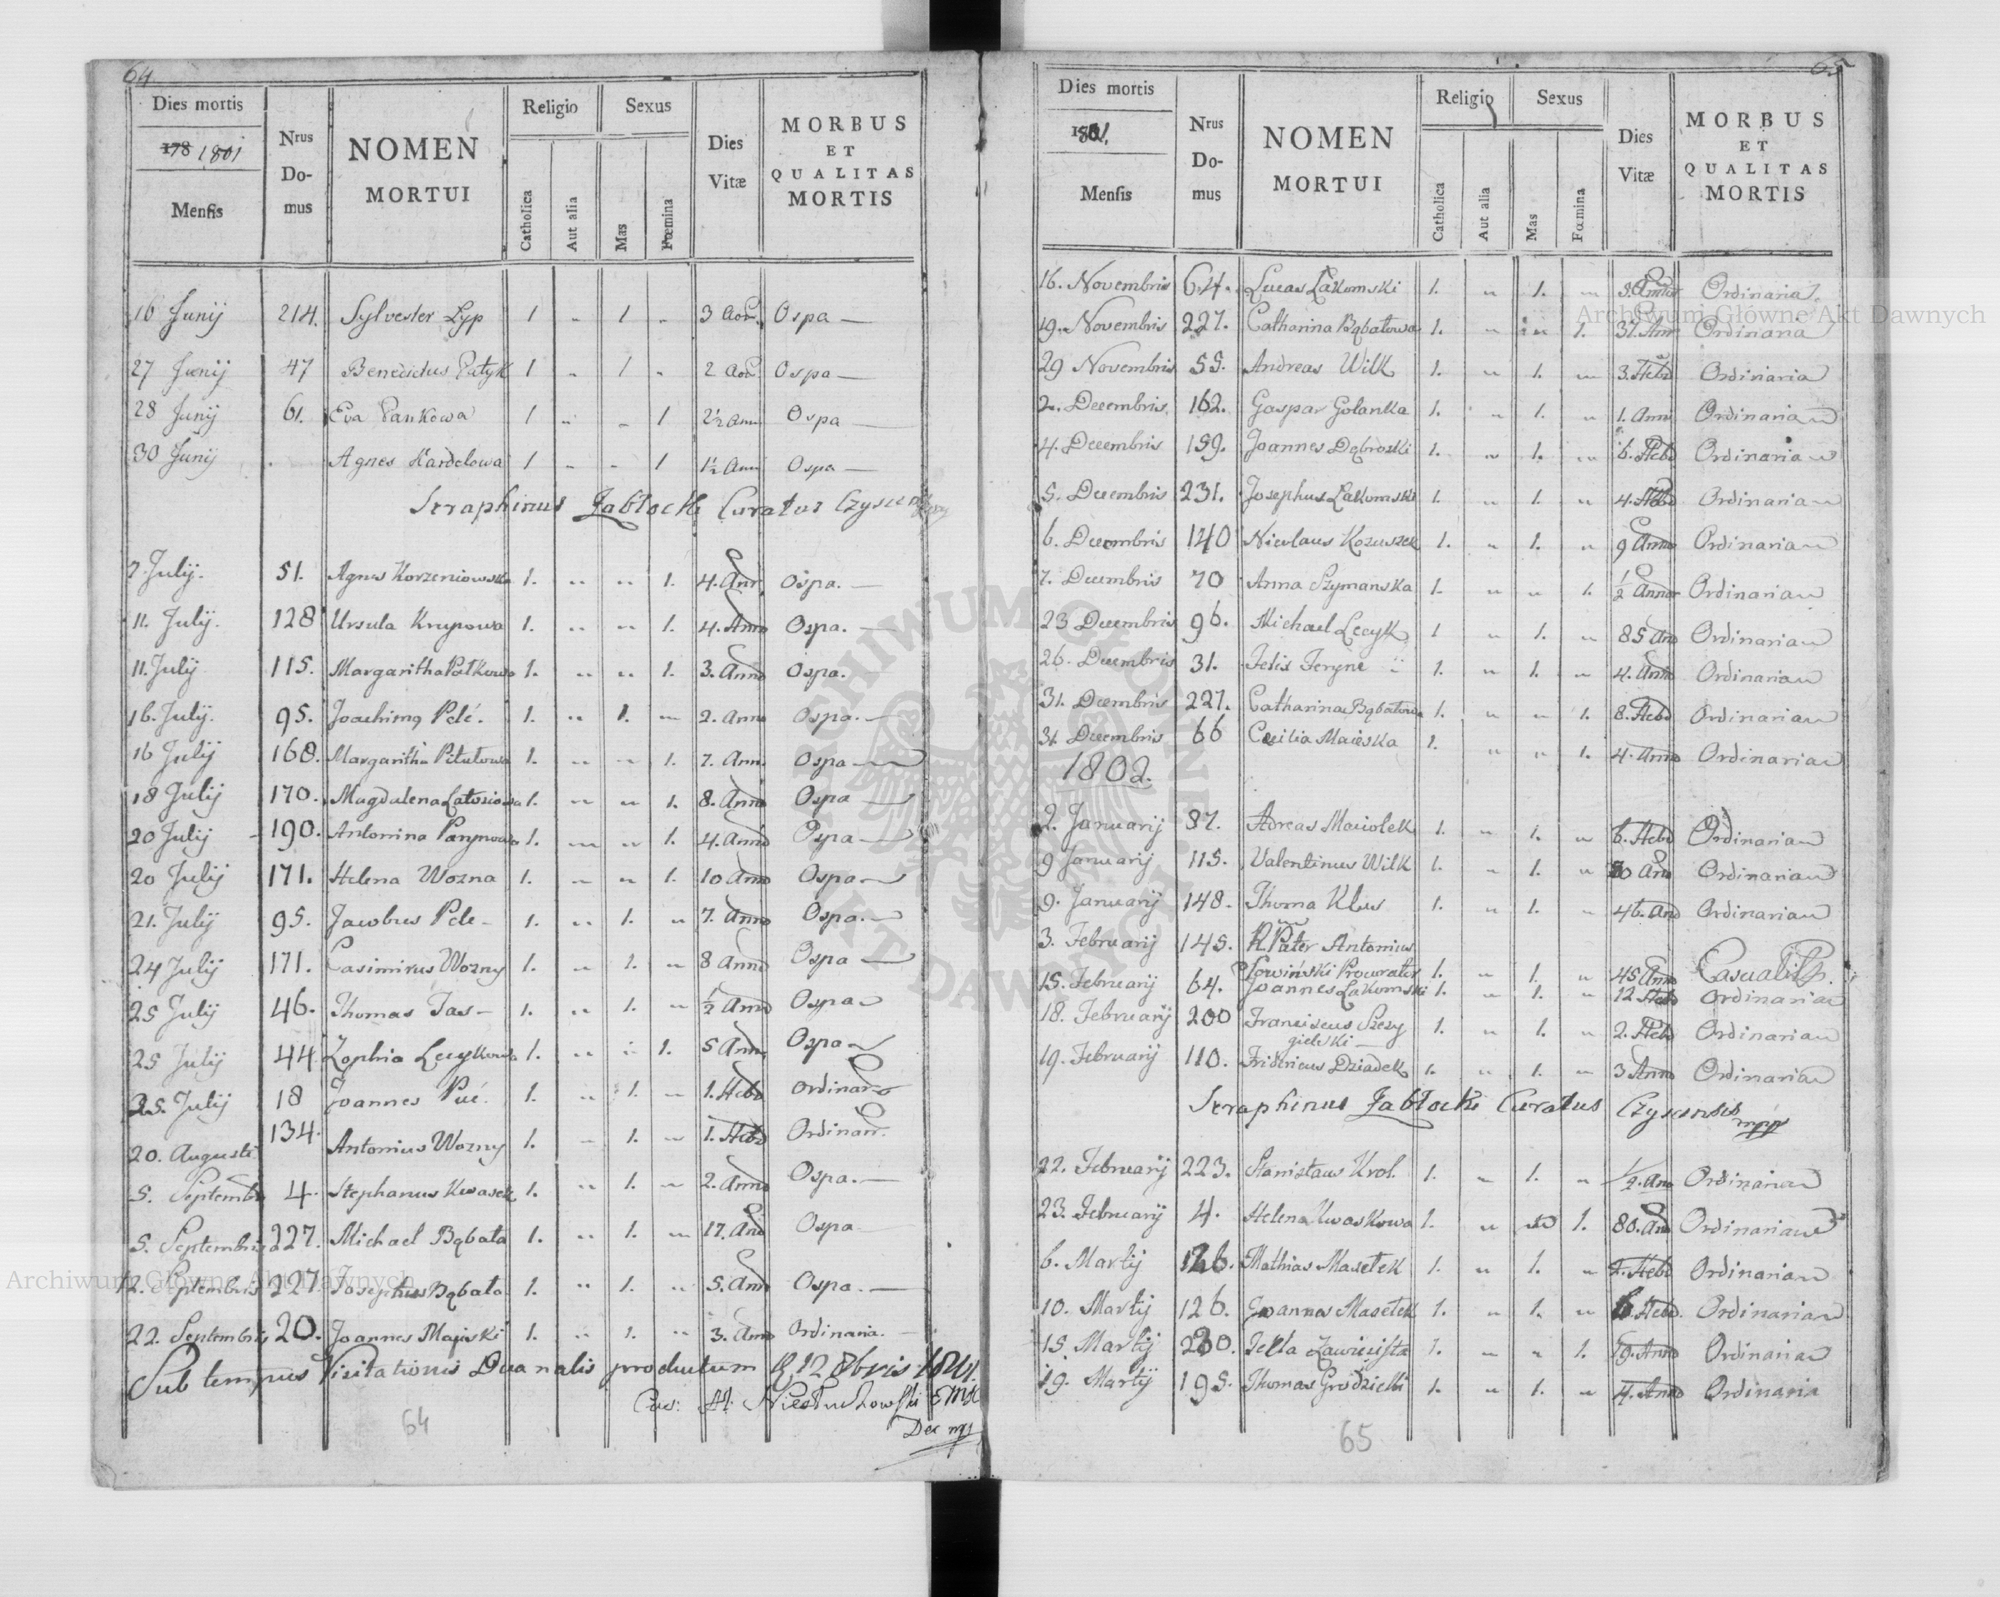 64
Dies mortis
178 1801
Mensis
Nrus Do- mus
NOMEN
MORTUI
Religio
Catholica
Aut alia
Sexus
Mas
Fœmina
Dies Vitæ
MORBUS
ET
QUALITAS
MORTIS
16 Junij 214. Sylvester Lyp 1 „ 1 „ 3 Ospa
27 Junij 47 Benedictus Patyk 1 „ 1 „ 2 Ospa
28 Junij 61. Eva Pankowa 1 „ „ 1 2½ Ann Ospa
30 Junij Agnes Kardelowa 1 „ „ 1 1½ Ann Ospa
Seraphinus Jabłocki Curatus
7 Julij. 51. Agnes Korzeniowska 1. „ „ 1. 4. Ann Ospa.
11. July. 128 Ursula Krupowa 1. „ „ 1. 4. Anno Ospa.
11. July 115. Margaritha Potkowa 1. „ „ 1. 3. Anno Ospa.
16. July. 95. Joachimg Pelć. 1. „ 1. „ 2. Anno Ospa.
16 July 168. Margaritha Pitutowa 1. „ „ 1. 7. Ann. Ospa
18 Julij 170. Magdalena 1. „ „ 1. 8. Anno Ospa
20 Julij 190. Antonina 1. „ „ 1. 4. Anno Ospa
20 Julij 171. Helena Wozna 1. „ „ 1. 10 Anno Ospa
21. July 95. Jacobus Pelc 1. „ 1. „ 7. Anno Ospa.
24 Julij 171. Casimirus Wozny 1. „ 1. „ 8 Anno Ospa
25 July 46. Thomas Jas 1. „ 1. „ ½ Anno Ospa
25 July 44 Zophia Lecykowa 1. „ „ 1. 5 Ann. Ospa
25. Julij 18 Joannes Puć. 1. „ 1. „ 1. Hebd Ordinar
20. Augusti 134. Antonius Wozny 1. „ 1. „ 1. Hebd Ordinari.
5. Septembris 4. Stephanus Kwasek 1. „ 1. „ 2. Anno Ospa.
5. Septembris 227. Michael Bąbata 1. „ 1. „ 17. And Ospa
2. Septembris 227. Josephus Bąbata 1. „ 1. „ 5. Ann Ospa.
22. Septembris 20. Joannes Majeski 1. „ 1. „ 3. Anno Ordinaria.
Sub tempus Visitationis Decanalis productum 12 8bris
Dec mp
64
65
Dies mortis
1801.
Mensis
Nrus Do- mus
NOMEN
MORTUI
Religio
Catholica
Aut alia
Sexus
Mas
Fœmina
Dies Vitæ
MORBUS
ET
QUALITAS
MORTIS
16. Novembris 64. Lucas Lakomski 1. „ 1. „ Ordinaria
19. Novembris 227. Catharina Bąbatowa 1. „ „ 1. 37. Ann Ordinaria
29 Novembris 55. Andreas Wilk 1. „ 1. „ 3. Hebd Ordinaria
2. Decembris. 162. Gaspar Golanka 1. „ 1. „ 1. Ann Ordinaria
4. Decembris 159. Joannes Dąbroski 1. „ 1. „ 6. Hebd Ordinaria
5. Decembris 231. Josephus Lakomski 1. „ 1. „ 4. Hebd Ordinaria
6. Decembris 140 Nicolaus Kozuszek 1. „ 1. „ 9 Anno Ordinaria
7. Decembris 70 Anna Szymanska 1. „ „ 1. ½ Annor Ordinaria
23 Decembris 96. Michael Lecyk 1 „ 1. „ 85 Ano Ordinaria
26. Decembris 31. Felix 1. „ 1. „ 4. Anno Ordinaria
31. Decembris 227. Catharina Bąbatowa 1. „ „ 1. 8. Hebd Ordinaria
31 Decembris 66 Cecilia Maieska 1. „ „ 1. 4. Anno Ordinaria
1802.
2. Januarij 87. Adreas Maciolek 1. „ 1. „ 6. Hebd Ordinaria
9 Januarij 115. Valentinus Wilk 1. „ 1. „ Ordinaria
9. Januarij 148. Thoma Klus 1. „ 1. „ 46. And Ordinaria
3. Februarij 145. R. Pater Antonius
Procurator 1. „ 1. „ 45 Anno Casualis
15. Februarij 64. Joannes Lakomski 1. „ 1. „ 12 Hebd Ordinaria
18. Februarij 200 Franciscus Szczy
gielski 1. „ 1. „ 2. Hebd Ordinaria
19. Februarij 110. Fridericus Dziadek 1. „ 1. „ 3 Anno Ordinaria
Seraphinus Jabłocki Curatus Czyscensis mpp
22. Februarij 223. Stanislaus Krol. 1. „ 1. „ ½. Ano Ordinaria
23. Februarij 4. Helena Kwaskowa 1. „ „ 1. 80. And Ordinaria
6. Martij 126. Mathias Masełek 1. „ 1. „ Hebd Ordinaria
10. Martij 126. Joannes Masełek 1. „ 1. „ 6 Hebd. Ordinaria
15. Martij 230. Tekla 1. „ „ 1. 19. Anno Ordinaria
19. Martij 195. Thomas Grodzicki 1. „ 1. „ 4. Anno Ordinaria
65
Archiwum Główne Akt Dawnych
Archiwum Główne Akt Dawnych
ARCHIWUM GŁÓWNE AKT DAWNYCH